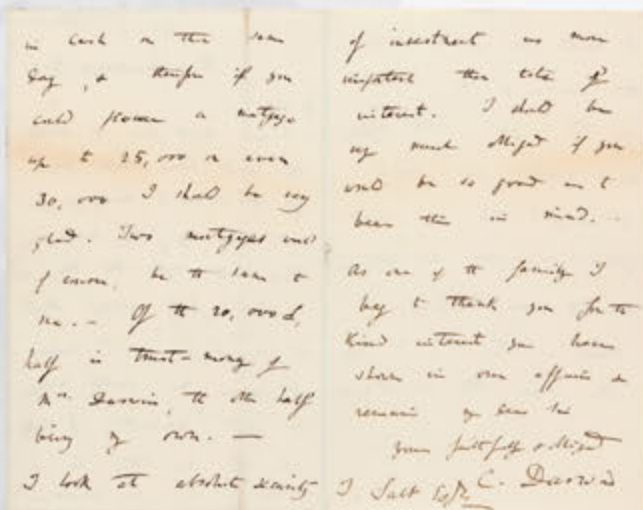 in cash on the same
day, & therefore if you
could procure a mortgage
up to 25,000 or even
30,000 I shall be very
glad. Two mortgages would
of course, be the same to
me. — Of the 20,000£,
half is trust-money of
Mrs. Darwin, the other half
being my own. —
I look at absolute security
of investment as more
important than rate of
interest. I shall be
very much obliged if you
would be so good as to
bear this in mind. —
As one of the family I
beg to thank you for the
kind interest you have
shown in our affairs &
remain my dear Sir
yours faithfully & obliged
C. Darwin
J Salt Esqre